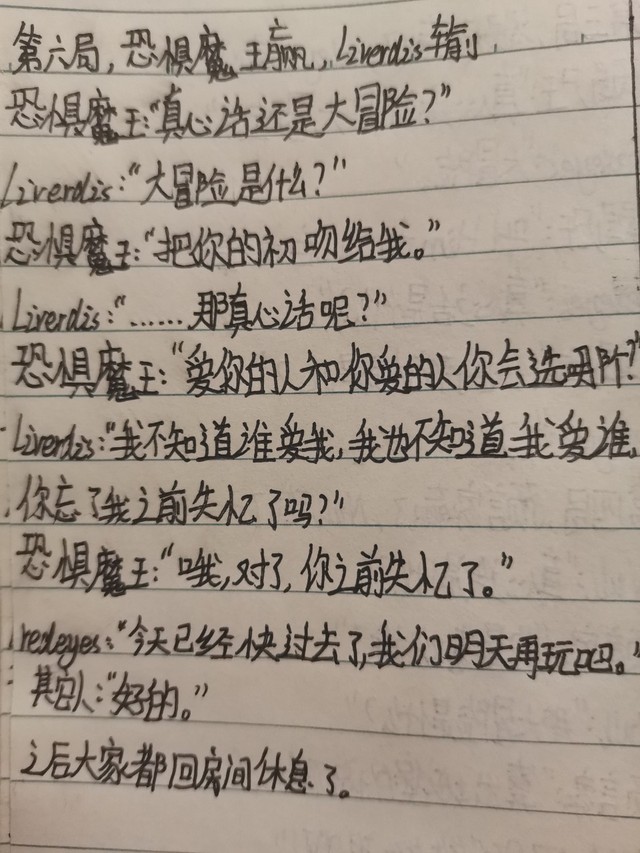 第六局,恐惧魔王赢,Liverdis输,
恐惧魔王:“真心话还是大冒险?”
Liverdis:“大冒险是什么?”
恐惧魔王:“把你的初吻给我。”
Liverdis:“……那真心话呢?”
恐惧魔王:“爱你的人和你爱的人你会选哪个?”
Liverdis:“我不知道谁爱我,我也不知道我爱谁,
你忘了我之前失忆了吗?”
恐惧魔王:“哦,对了,你之前失忆了。”
redeyes:“今天已经快过去了,我们明天再玩吧。”
其它人:“好的。”
之后大家都回房间休息了。